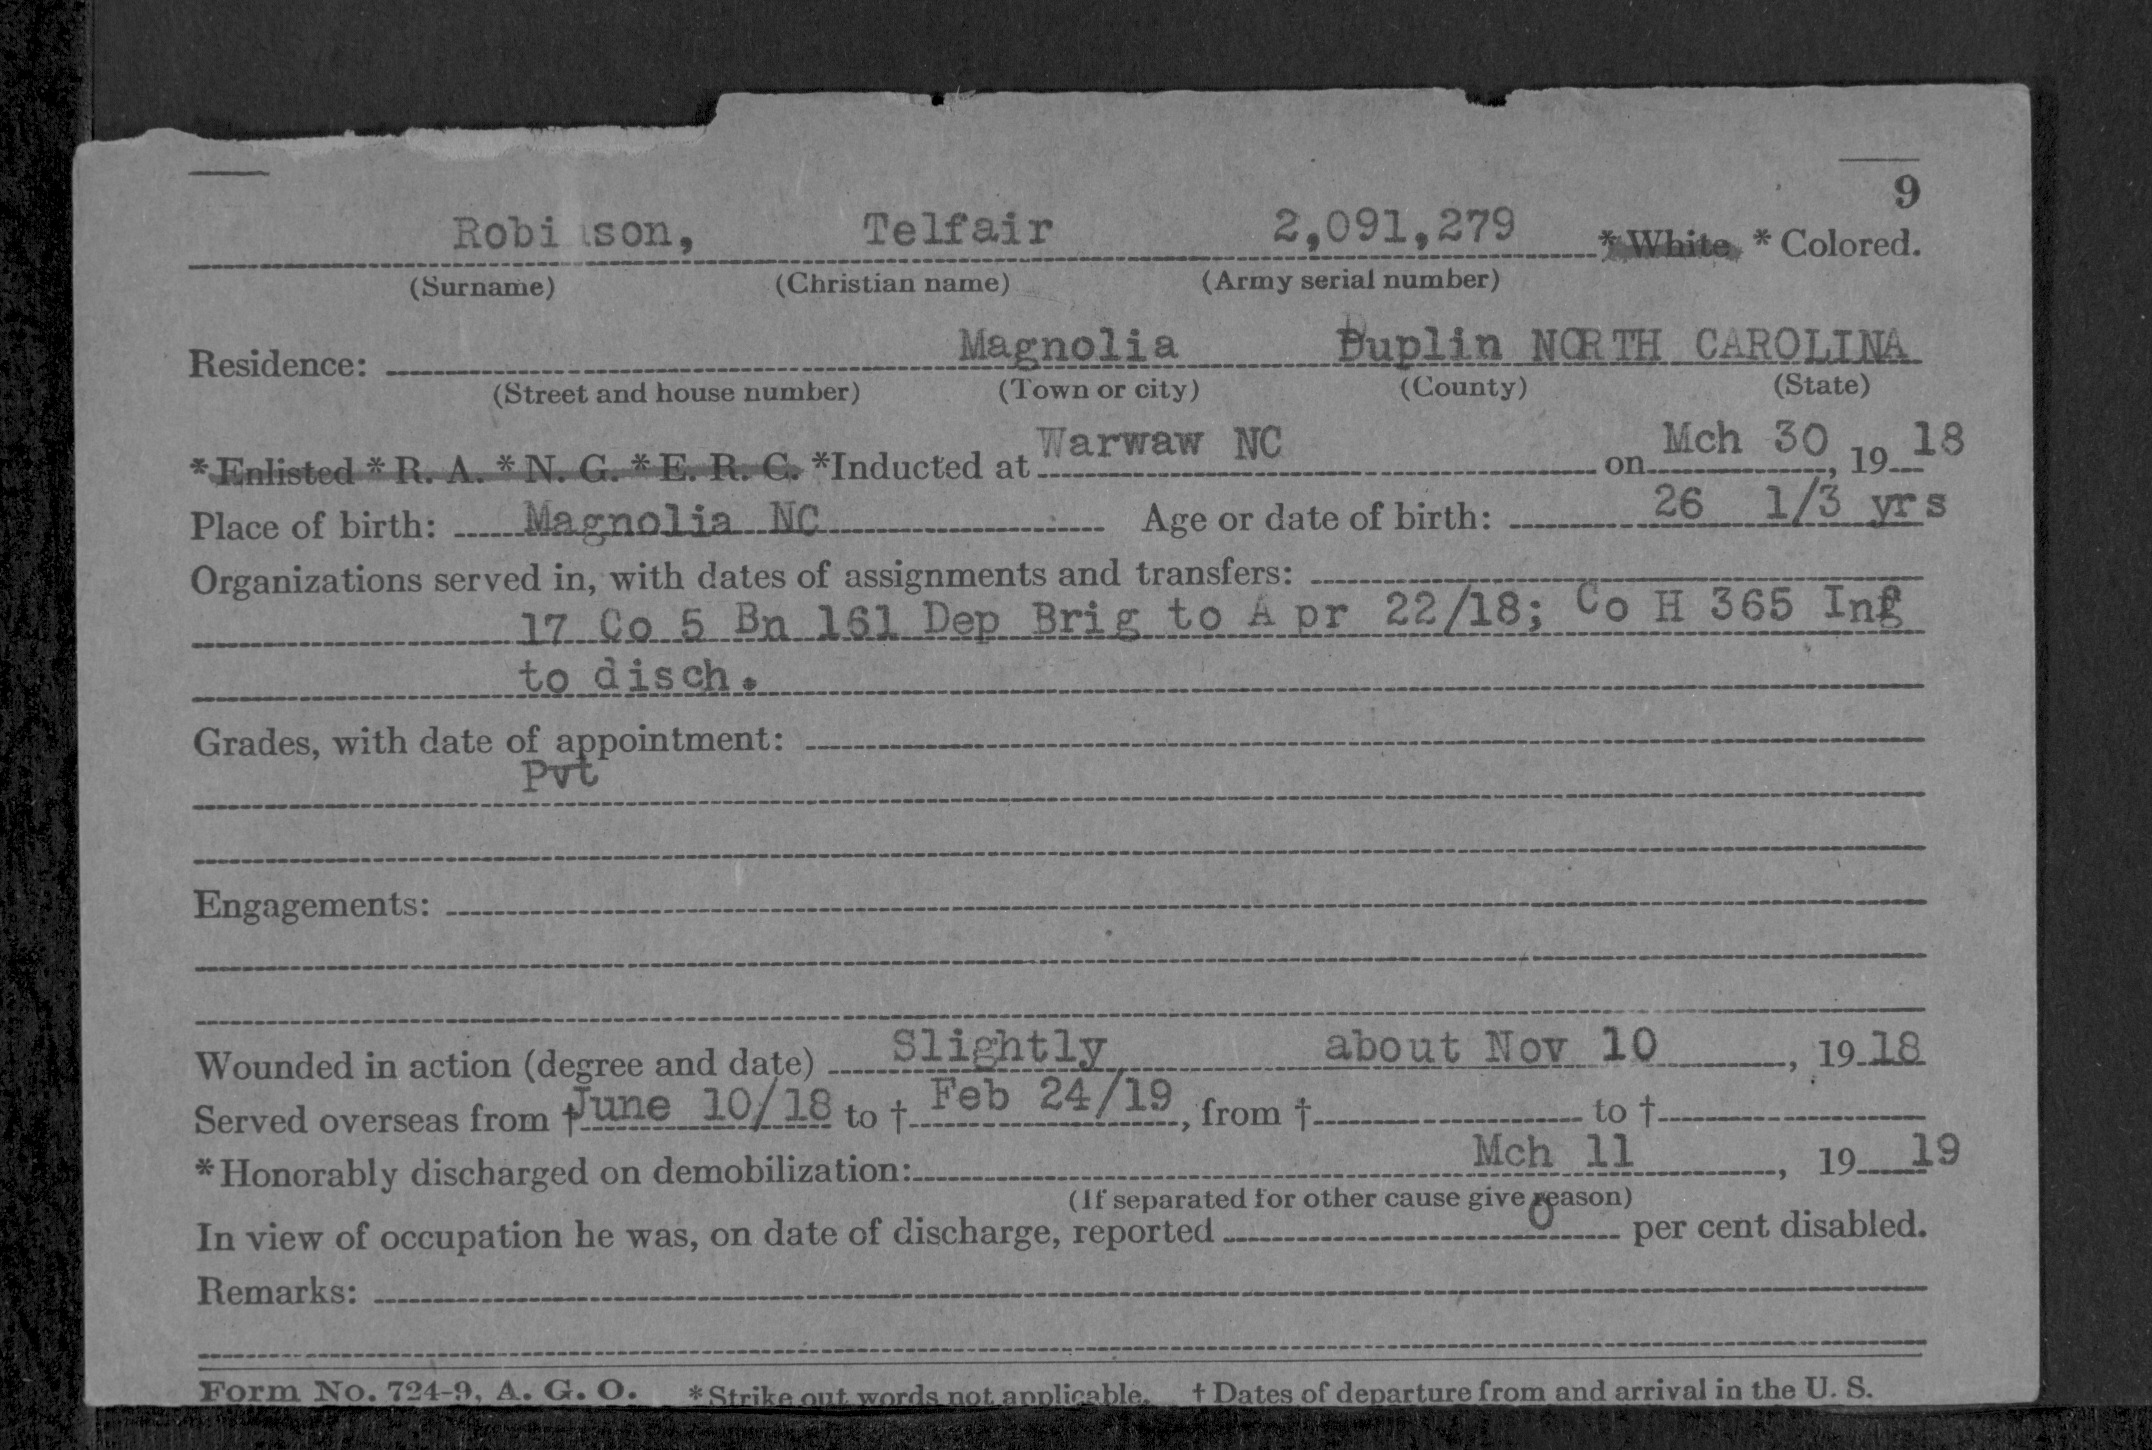 9
Robinson, Telfair 2,091,279 * White * Colored.
(Surname) (Christian name) (Army serial number)
Residence: Magnolia Duplin NORTH CAROLINA
(Street and house number) (Town or city) (County) (State)
* Enlisted * R. A. * N. G. * E. R. C. *Inducted at Warwaw NC on Mch 30, 1918
Place of birth: Magnolia NC Age or date of birth: 26 1/3 yrs
Organizations served in, with dates of assignments and transfers:
17 Co 5 Bn 161 Dep Brig to Apr 22/18; Co H 365 Inf
to disch.
Grades, with date of appointment:
Pvt
Engagements:
Wounded in action (degree and date) Slightly about Nov 10, 1918
Served overseas from † June 10/18 to † Feb 24/19, from † to †
* Honorably discharged on demobilization: Mch 11, 1919
(If separated for other cause give reason)
In view of occupation he was, on date of discharge, reported 0 per cent disabled.
Remarks:
Form No. 724-9, A. G. O. * Strike out words not applicable. † Dates of departure from and arrival in the U. S.